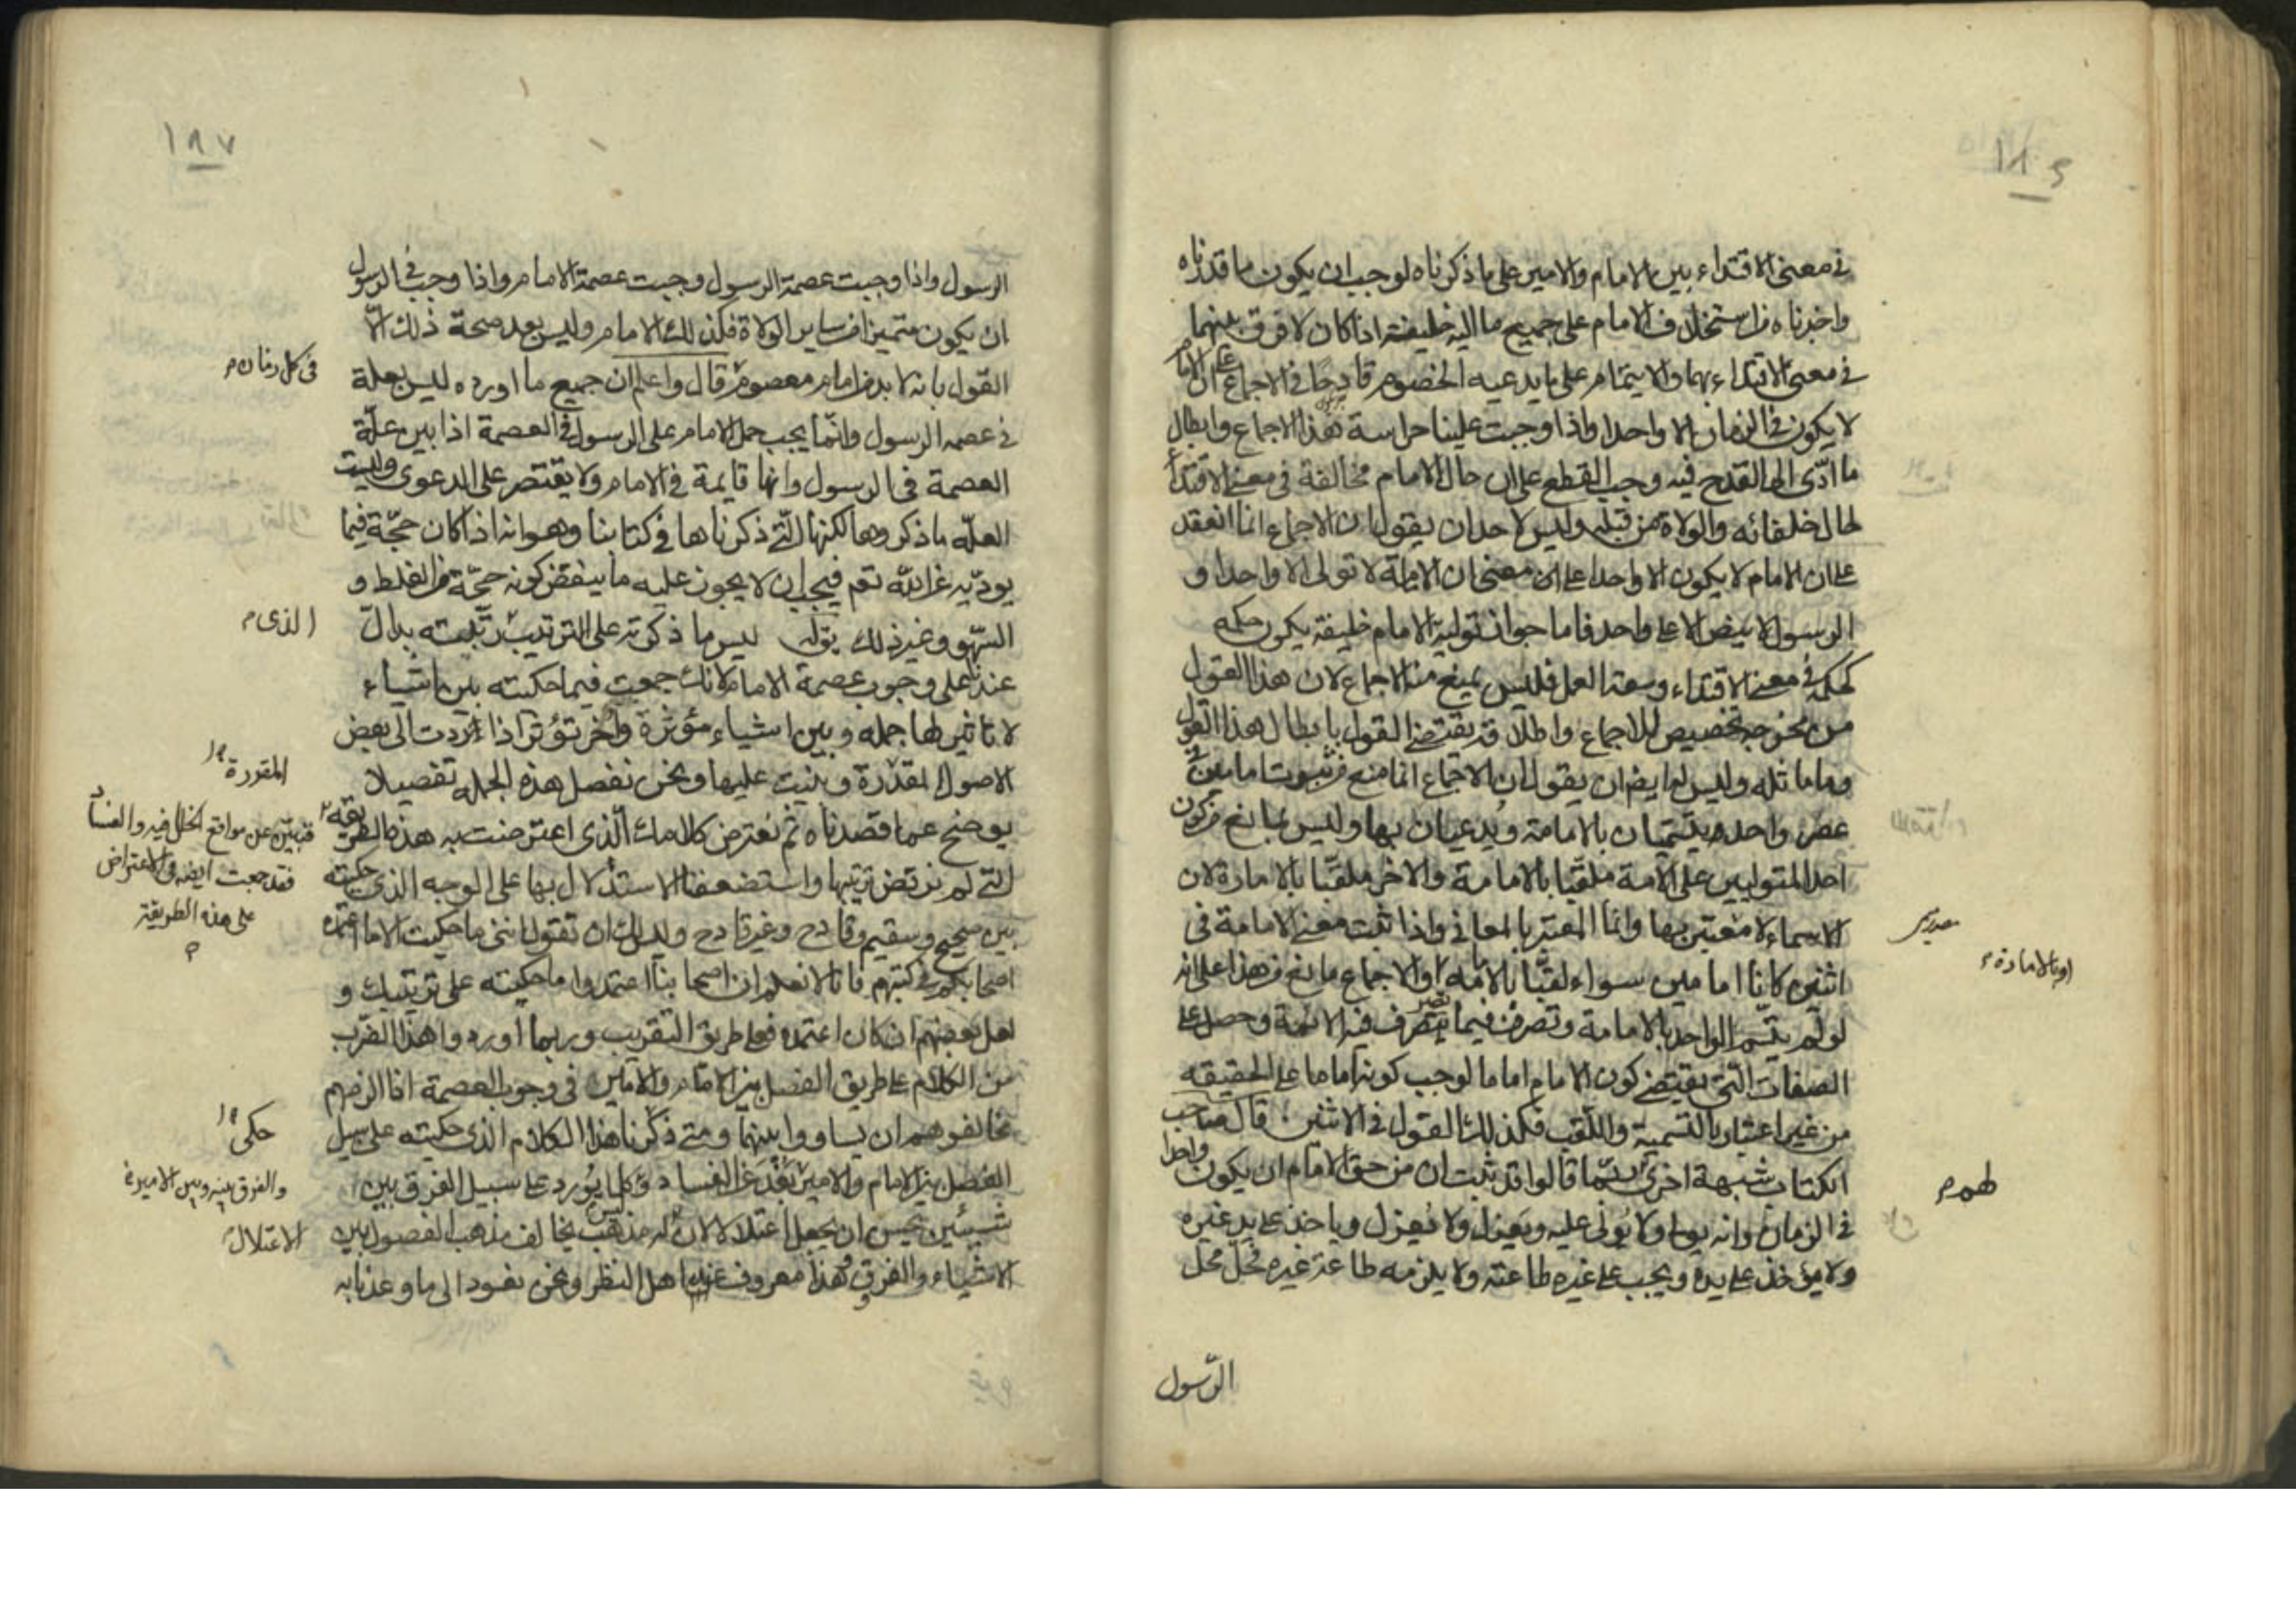 في معنى الاقتداء بين الامام والامير على ما ذكرناه لوجب ان يكون ما قدرناه
واخبرناه من استخلاف الامام على جميع ما اليه خليفة اذا كان لا فرق بينهما
في معنى الاقتداء بهما والايتمام على ما يدعيه الخصوم قادحا في الاجماع على ان الامام
لا يكون في الزمان الا واحدا واذا وجبت علينا حراسة هذا الاجماع وابطال
ما ادّى الى القدح فيه وجب القطع على ان حال الامام مخالفة في معنى الاقتداء
لحال خلفائه والولاة من قبله وليس لاحد ان يقول ان الاجماع انما انعقد
على ان الامام لا يكون الا واحدا على ان معنى ان الامامة لا تولى الا واحدا و
الرسول لا ينص الا على واحد فاما جواز تولية الامام خليفة يكون حكمه
كحكمه في معنى الاقتداء وسعة العمل فليس يمنع منه الاجماع لان هذا القول
من نحو جه تخصيص للاجماع واطلاقه يقتضى القول بابطال هذا القول
وما ماثله وليس له ايضا ان يقول ان الاجماع انما منع من ثبوت امامين في
عصر واحد يتسميان بالامامة ويدعيان بها وليس بمانع من كون
احد المتوليين على الامة ملقبا بالامامة والاخر ملقبا بالامارة لان
الاسماء لا معتبر بها وانما المعتبر بالمعاني واذا ثبت معنى الامامة في
اثنين كانا امامين سواء لقبا بالائمه او الاجماع مانع من هذا على انه
او بالامارة م
لو لم يتسم الواحد بالامامة وتصرف فيما يتصرف فيه الائمة وحصل على
الصفات التي يقتضى كون الامام اماما لوجب كونه اماما على الحقيقه
من غير اعتبار بالتسمية واللقب فكذلك القول في الاثنين قال صاحب
الكتاب شبهة اخرى لهم ربما قالوا قد ثبت ان من حق الامام ان يكون واحدا
لهم م
في الزمان وانه يولى ولا يُولى عليه ويعزل ولا يُعزل وياخذ على يد غيره
ولا يؤخذ على يده ويجب على غيره طاعته ولا يلزمه طاعة غيره فحلّ محل
الرّسول
١٨٧
الرسول واذا وجبت عصمة الرسول وجبت عصمة الامام واذا وجب في الرسول
ان يكون متميزا من ساير الولاة فكذلك الامام وليس بعد صحة ذلك الّا
القول بانه لا بد من امام معصوم قال واعلم ان جميع ما اورده ليس بعلة
في كل زمان م
في عصمه الرسول وانّما يجب حمل الامام على الرسول في العصمة اذا بين علّة
العصمة في الرسول وانها قايمة في الامام ولا يقتصر على الدعوى وليست
العلّه ما ذكروها لكنها الّتي ذكرناها في كتابنا وهو انه اذا كان حجّة فيما
يودّيه عن الله تعم فيجب ان لا يجوز عليه ما ينقض كونه حجّة من الغلط و
السّهو وغير ذلك يق له ليس ما ذكرته على الترتيب رتّبته بدالّ
الذى م
عندنا على وجوب عصمة الامام لانك جمعت فيما حكيته بين اشياء
لا تاثير لها جمله وبين اشياء مؤثرة وأخر تؤثر اذا ردّت الى بعض
الاصول المقدّرة وبنيت عليها ونحن نفصل هذه الجمله تفصيلا
المقررة
يوضح عما قصدناه ثم نعترض كلامك الّذى اعترضت به هذه الطريقه
فنبيّن عن مواقع الخلل فيه والفساد
فقد جمعت ايضا في الاعتراض
على هذه الطريقة
م
الّتي لم نرتض ترتيبها واستضعفنا الاستدلال بها على الوجه الذى حكيته
بين صحيح وسقيم وقادح وغير قادح وليس لك ان تقول اننى ما حكيت الا ما اعتمده
اصحابكم في كتبهم فانا لا نعلم ان اصحابنا اعتمدوا ما حكيته على ترتيبك و
لعل بعضهم ان كان اعتمده فعلى طريق التقريب وربما اوردوا هذا الضّرب
من الكلام على طريق الفصل بين الامام والامير في وجوب العصمة اذا الزمهم
مخالفوهم ان يساووا بينهما ومتى ذكرنا هذا الكلام الذى حكيته على سبيل
حكى
الفصل بين الامام والامير بَعُدَ عن الفساد وكلما يُورد على سبيل الفرق بين
والفرق بينه وبين الامير في
شيئين يحسن ان يجعل اعتلالا لان له مذهب يخالف مذهب الفصول بين
الاعتلال
الاشياء والفرق وهذا معروف عند اهل النظر ونحن نعود الى ما وعدنا به